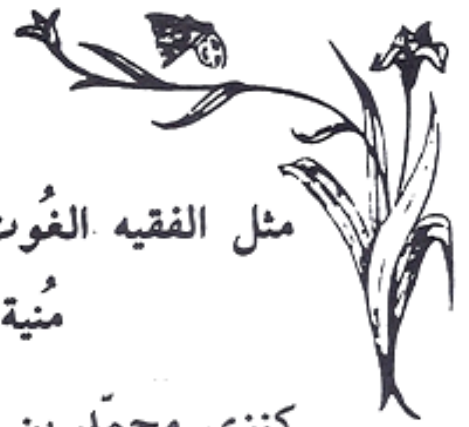 مثل الفقيه الغُوث
مُنية
كنزي محمّد بن